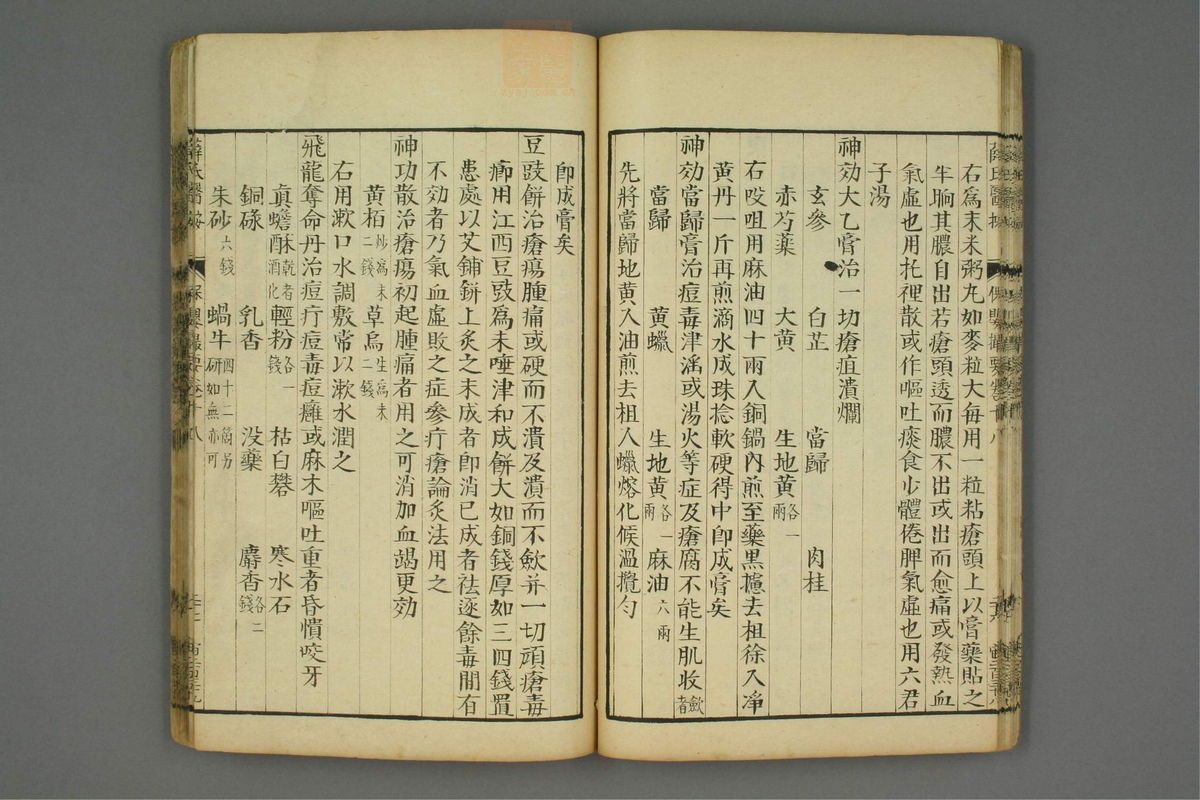 右為末米粥丸如麥粒大每用一粒粘瘡頭上以膏藥貼之
半晌其膿自出若瘡頭透而膿不出或出而愈痛或發熱血
氣虛也用托裡散或作嘔吐痰食少體倦脾氣虛也用六君
子湯
神効大乙膏治一切瘡疽潰爛
玄參 白芷 當歸 肉桂
赤芍藥 大黃 生地黃各一兩
右㕮咀用麻油四十兩入銅鍋內煎至藥黑攄去柤徐入淨
黃丹一斤再煎滴水成珠捻軟硬得中卽成膏矣
神効當歸膏治痘毒津滛或湯火等症及瘡腐不能生肌收斂者
當歸 黃蠟 生地黃各一兩 麻油六兩
先將當歸地黃入油煎去柤入蠟熔化候溫攪勻
卽成膏矣
豆豉餅治瘡瘍腫痛或硬而不潰及潰而不斂并一切頑瘡毒
癤用江西豆豉為末唾津和成餅大如銅錢厚如三四錢置
患處以艾鋪餅上炙之未成者卽消已成者祛逐餘毒間有
不効者乃氣血虛敗之症參疔瘡論炙法用之
神功散治瘡瘍初起腫痛者用之可消加血竭更効
黃柏炒為末二錢 草烏生為末二錢
右用漱口水調敷常以漱水潤之
飛龍奪命丹治痘疔痘毒痘癰或麻木嘔吐重者昏憒咬牙
真蟾酥乾者酒化 輕粉各一錢 枯白礬 寒水石
銅碌 乳香 没藥 麝香各二錢
朱砂六錢 蝸牛四十二箇另研如無亦可
薛氏醫按 保嬰撮要卷十八